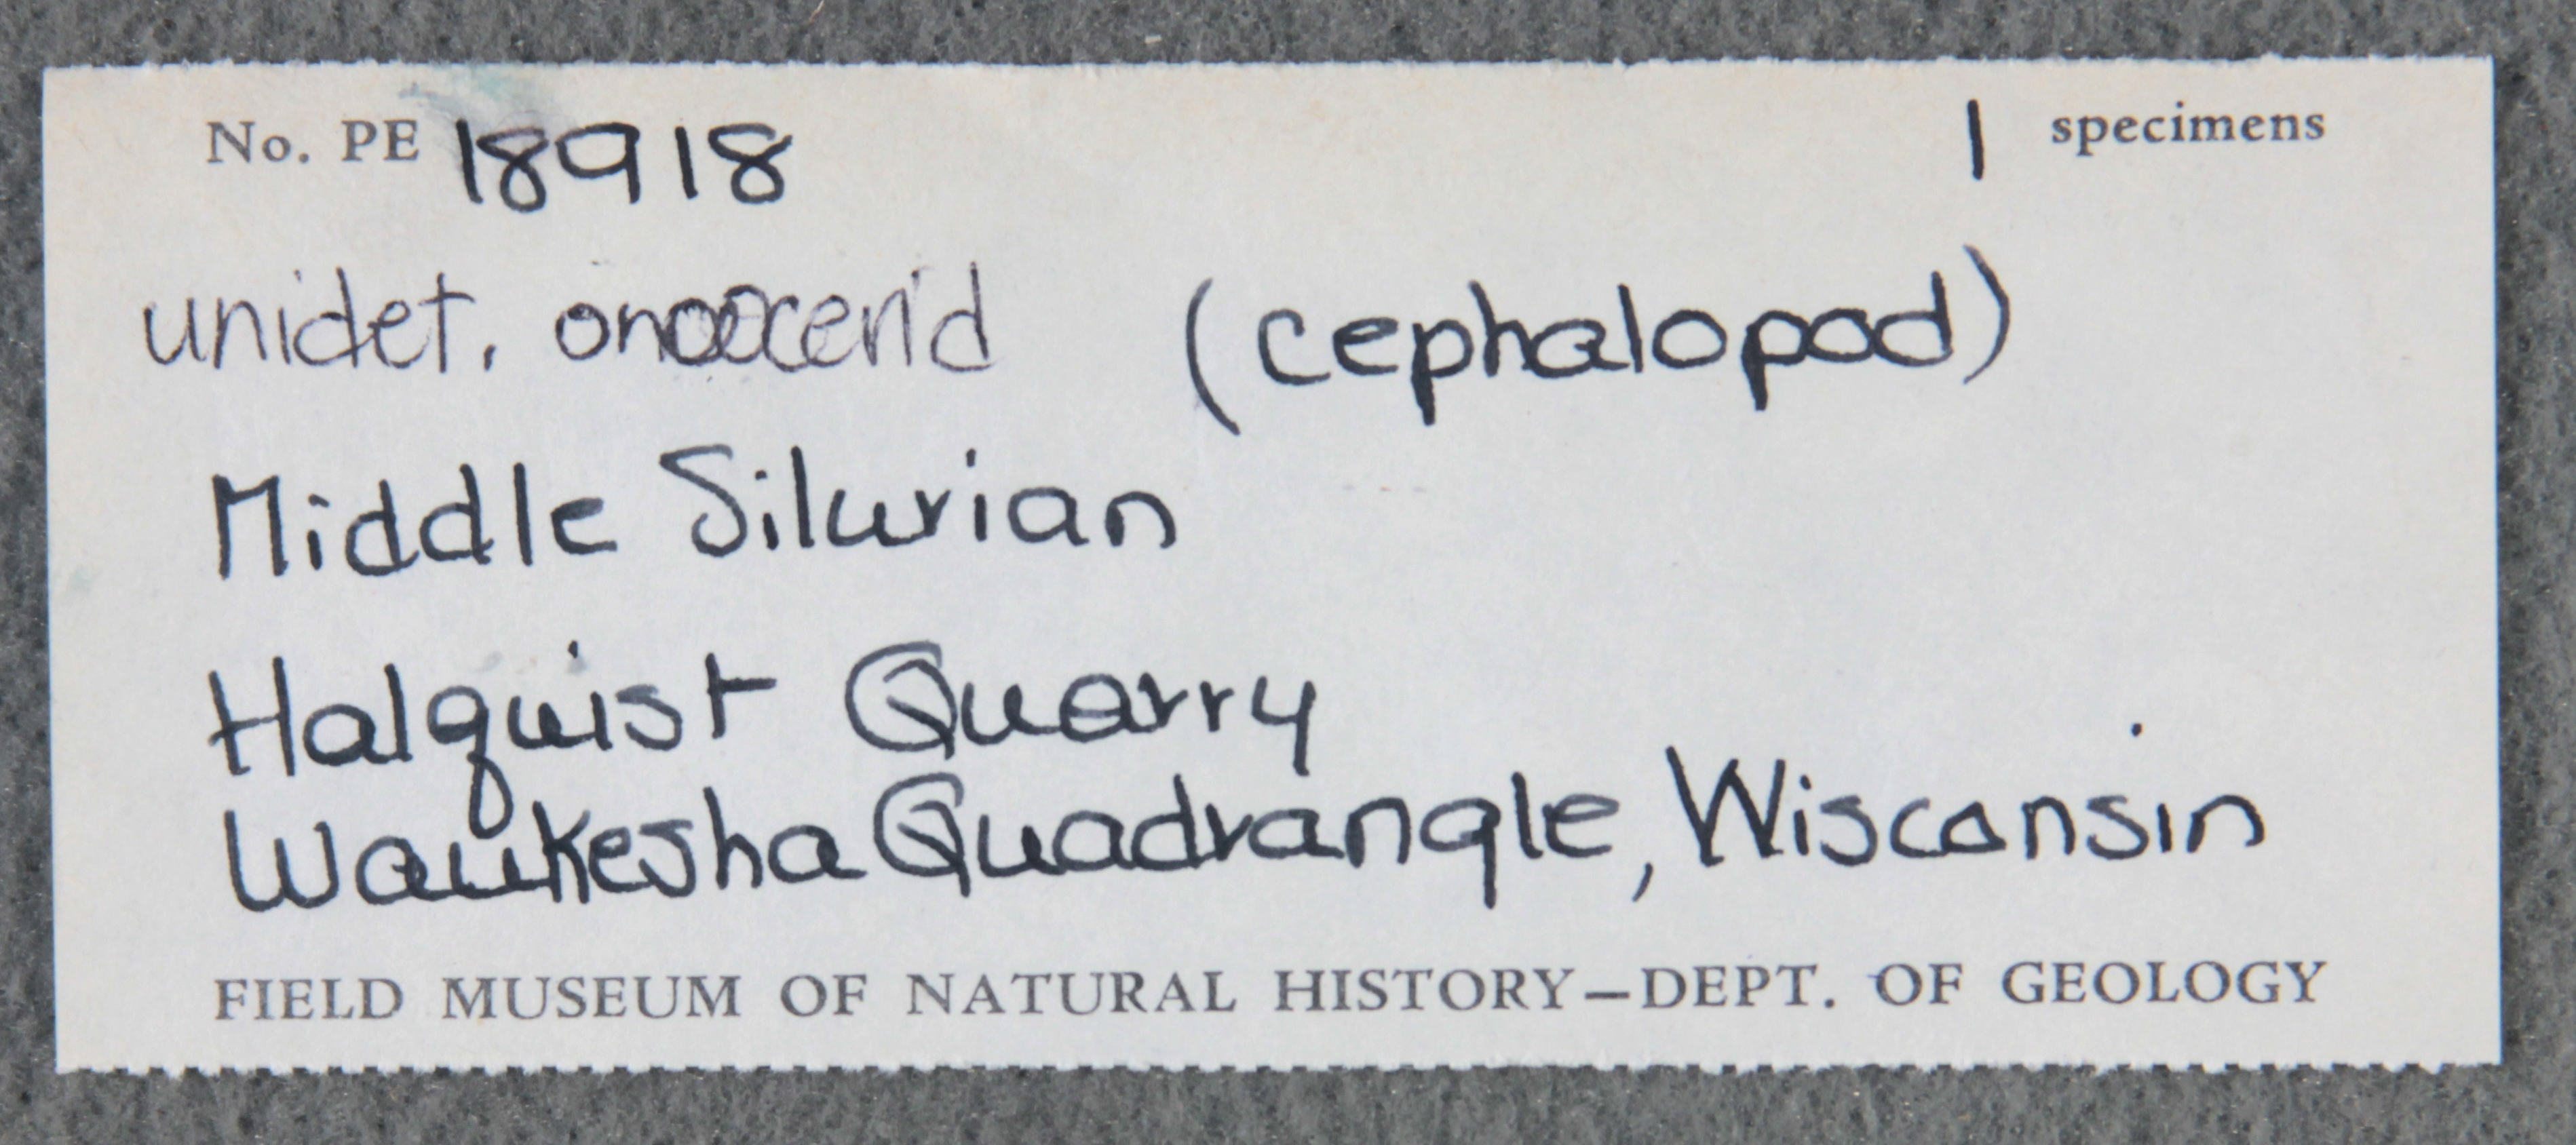 No. PE 18918 1 specimens
unidet. oncocerid (cephalopod)
Middle Silurian
Halquist Quarry
Waukesha Quadrangle, Wisconsin
FIELD MUSEUM OF NATURAL HISTORY—DEPT. OF GEOLOGY